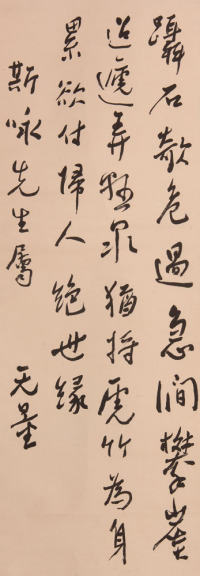 躡石欹危過急澗攀崖
迢遞弄懸泉猶將虎竹為身
累欲付歸人絕世緣
斯咏先生屬 无量